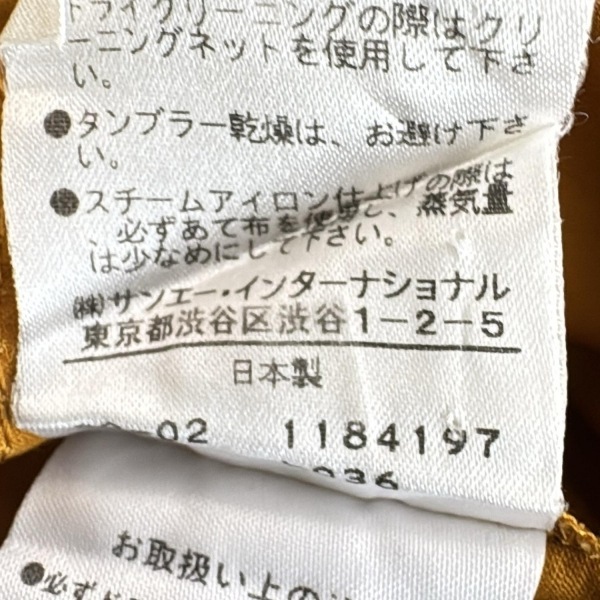 ドライクリーニングの際はクリ
ーニングネットを使用して下さ
い。
●タンブラー乾燥は、お避け下さ
い。
●スチームアイロン仕上げの際は
、必ずあて布を使用し、蒸気量
は少なめにして下さい。
㈱サンエー・インターナショナル
東京都渋谷区渋谷1-2-5
日本製
-02 1184197
036
お取扱い上の
●必ず